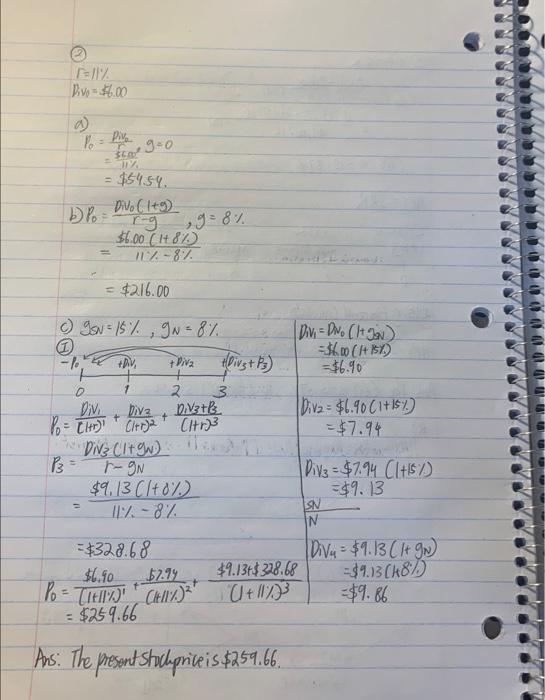 ②
r=11%
Div₀ = $6.00
a)
P₀ = Div₀/r, g=0
= $6.00/11%
= $54.54.
b) P₀ = Div₀(1+g)/r-g, g = 8%
= $6.00 (1+8%)/11%-8%
= $216.00
c) gSN = 15%, gN = 8%
Ⓘ
-P₀ +Div₁ +Div₂ +(Div₃+P₃)
0 1 2 3
P₀ = Div₁/(1+r)¹ + Div₂/(1+r)² + Div₃+P₃/(1+r)³
P₃ = Div₃(1+gN)/r-gN
= $9.13(1+8%)/11%-8%
= $328.68
P₀ = $6.90/(1+11%)¹ + $7.94/(1+11%)² + $9.13+$328.68/(1+11%)³
= $259.66
Div₁ = Div₀ (1+gSN)
= $6.00 (1+15%)
= $6.90
Div₂ = $6.90 (1+15%)
= $7.94
Div₃ = $7.94 (1+15%)
= $9.13
SN
N
Div₄ = $9.13(1+gN)
= $9.13(1+8%)
= $9.86
Ans: The present stock price is $259.66.